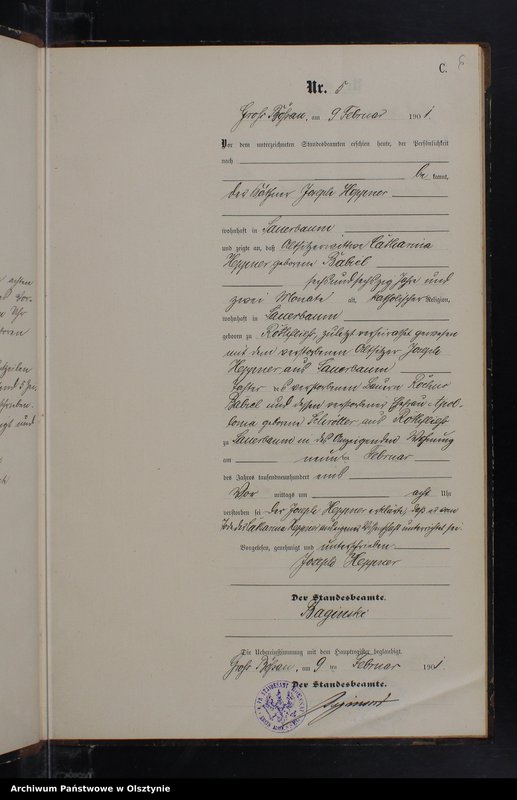 C.
Nr. 5
Groß Bößau, am 9 Februar 1901.
Vor dem unterzeichneten Standesbeamten erschien heute, der Persönlichkeit
nach
be kannt,
der Käthner Joseph Heppner
wohnhaft in Sauerbaum
und zeigte an, daß Altsitzerwittwe Catharina
Heppner geborene Babiel
sechsundsechszig Jahre und
zwei Monate alt, katholischer Religion,
wohnhaft in Sauerbaum
geboren zu Rothfließ, zuletzt verheirathet gewesen
mit dem verstorbenen Altsitzer Joseph
Heppner aus Sauerbaum
Tochter des verstorbenen Bauern
Babiel und dessen verstorbener Ehefrau Apol-
lonia geborene aus Rothfließ
zu Sauerbaum in des Anzeigenden Wohnung
am neun ten Februar
des Jahres tausendneunhundert eins
Vor mittags um acht Uhr
verstorben sei der Joseph Heppner erklärte, daß er vom
Tode der Catharina Heppner aus eigener Wissenschaft unterrichtet sei.
Vorgelesen, genehmigt und unterschrieben
Joseph Heppner
Der Standesbeamte.
Baginski
Die Uebereinstimmung mit dem Hauptregister beglaubigt.
Groß Bößau, am 9 ten Februar 1901.
Der Standesbeamte.
Archiwum Państwowe w Olsztynie